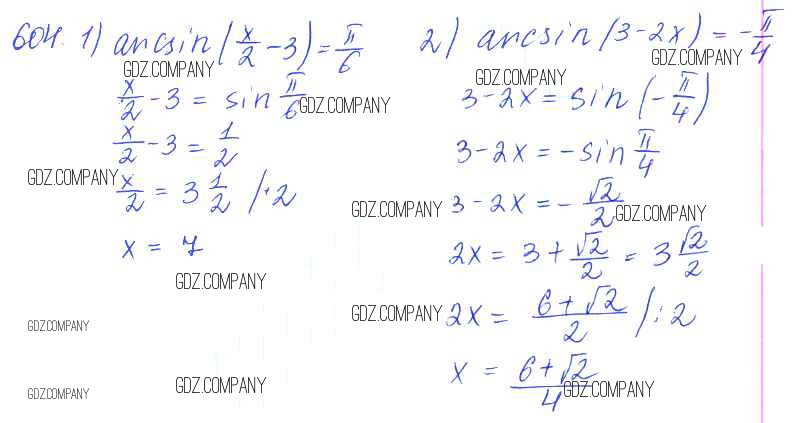 604. 1) arcsin(x/2 - 3) = π/6
GDZ.COMPANY
x/2 - 3 = sin π/6
GDZ.COMPANY
x/2 - 3 = 1/2
GDZ.COMPANY
x/2 = 3 1/2 /·2
x = 7
GDZ.COMPANY
GDZ.COMPANY
GDZ.COMPANY
GDZ.COMPANY
2) arcsin(3-2x) = -π/4
GDZ.COMPANY
GDZ.COMPANY
3-2x = sin(-π/4)
3-2x = -sin π/4
3-2x = -√2/2
GDZ.COMPANY
GDZ.COMPANY
2x = 3 + √2/2 = 3 √2/2
2x = (6+√2)/2 /:2
GDZ.COMPANY
x = (6+√2)/4
GDZ.COMPANY